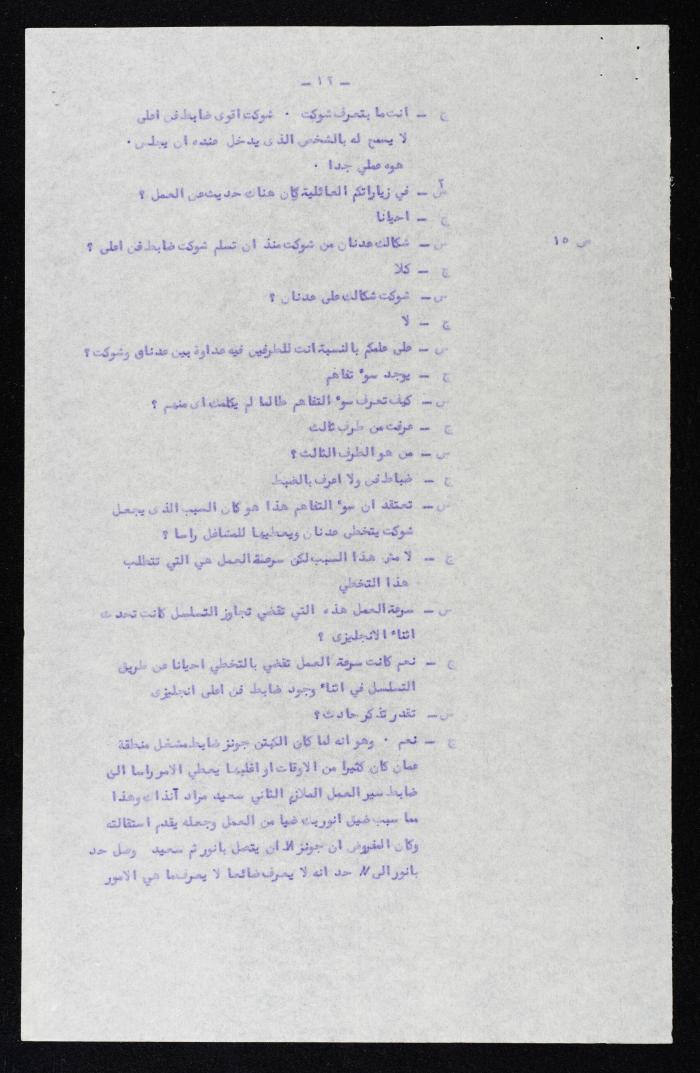 — ١٢ —
ج — انت ما بتعرف شوكت . شوكت اقوى ضابط فن اعلى
لا يسمح له بالشخص الذى يدخل عنده ان يجلس .
هوه عملي جدا .
س — في زياراتكم العائلية كان هناك حديث عن العمل ؟
ج — احيانا
ص ١٥
س — شكالك عدنان من شوكت منذ ان تسلم شوكت ضابط فن اعلى ؟
ج — كلا
س — شوكت شكالك على عدنان ؟
ج — لا
س — على علمكم بالنسبة انت للطرفين فيه عداوة بين عدنان وشوكت ؟
ج — يوجد سوء تفاهم
س — كيف تعرف سوء التفاهم طالما لم يكلمك اى منهم ؟
ج — عرفت من طرف ثالث
س — من هو الطرف الثالث ؟
ج — ضباط فن ولا اعرف بالضبط
س — تعتقد ان سوء التفاهم هذا هو كان السبب الذى يجعل
شوكت يتخطى عدنان ويعطيها للمشاغل راسا ؟
ج — لا مش هذا السبب لكن سرعة العمل هي التي تتطلب
هذا التخطي
س — سرعة العمل هذه التي تقضي تجاوز التسلسل كانت تحدث
اثناء الانجليزى ؟
ج — نعم كانت سرعة العمل تقضي بالتخطي احيانا عن طريق
التسلسل في اثناء وجود ضابط فن اعلى انجليزى
س — تقدر تذكر حادث ؟
ج — نعم . وهو انه لما كان الكبتن جونز ضابط مشغل منطقة
عمان كان كثيرا من الاوقات او اغلبها يعطي الامر راسا الى
ضابط سير العمل الملازم الثاني سعيد مراد آنذاك وهذا
مما سبب ضيق انور بك ضيا من العمل وجعله يقدم استقالته
وكان المفروض ان جونز ان يتصل بانور ثم سعيد وصل حد
بانور الى حد انه لا يعرف ضائعا لا يعرف ما هي الامور